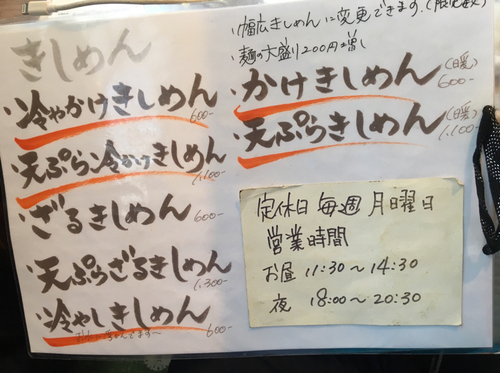 きしめん
・冷やかけきしめん 600-
・天ぷら冷かけきしめん 1,100-
・ざるきしめん 600-
・天ぷらざるきしめん 1,300-
・冷やしきしめん 600-
・幅広きしめんに変更できます。(限定数)
・麺の大盛り200円増し
・かけきしめん (暖) 600-
・天ぷらきしめん (暖) 1,100-
定休日 毎週 月曜日
営業時間
お昼 11:30〜14:30
夜 18:00〜20:30